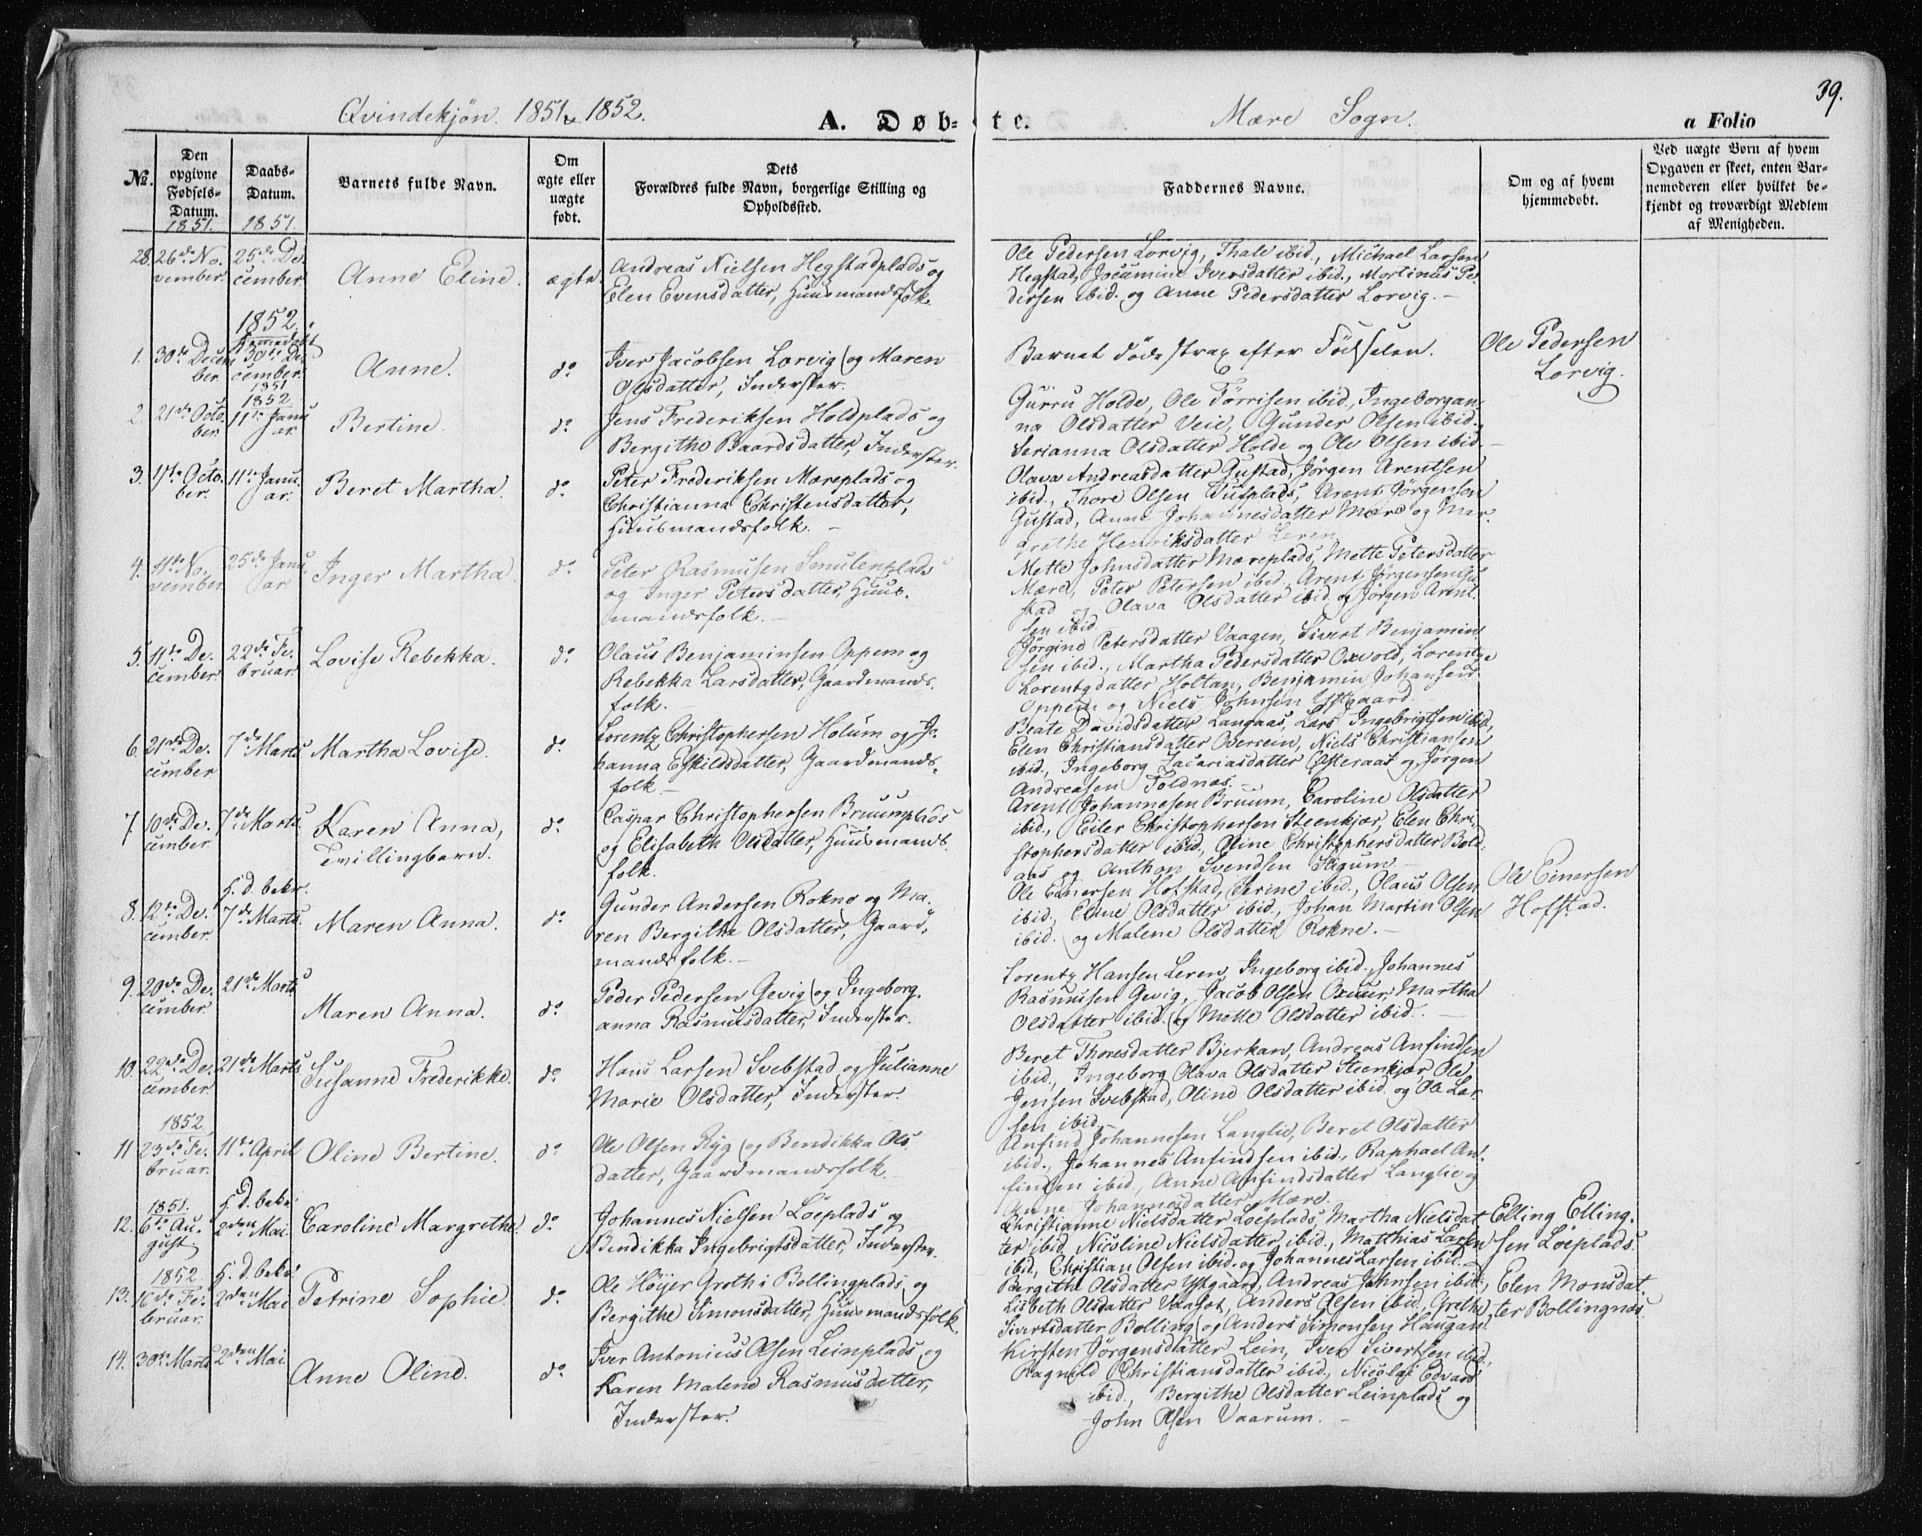 39.
Qvindekjøn. 1851 & 1852.
A. Døb-
te.
Mære Sogn.
a Folio
№.
Den
opgivne
Fødsels-
Datum.
1851.
Daabs-
Datum.
1851.
Barnets fulde Navn.
Om
ægte eller
uægte
født.
Dets
Forældres fulde Navn, borgerlige Stilling og
Opholdssted.
Faddernes Navne.
Om og af hvem
hjemmedøbt.
Ved uægte Børn af hvem
Opgaven er skeet, enten Bar-
nemoderen eller hvilket be-
kjendt og troværdigt Medlem
af Menigheden.
28. 26de No-
vember.
25de De-
cember.
Anne Eline.
ægte
Andreas Nielsen Hegstadplads og
Elen Evensdatter, Huusmandsfolk.
Ole Pedersen Lorvig, Thale ibid., Michael Larsen
Hegstad, Jocumine Iversdatter ibid., Mortinus Pe-
dersen ibid. og Anne Pedersdatter Lorvig. -
1. 30te Decem-
ber.
1852.
hjemmedøbt
30te De-
cember.
1851
Anne.
do
Iver Jacobsen Lorvig og Maren
Olsdatter, Inderster.
Barnet døde strax efter Fødselen.
Ole Pedersen
Lorvig.
2. 21de Octo-
ber.
1852
11te Janu-
ar.
Bertine.
do
Jens Frederiksen Holdplads og
Bergithe Baardsdatter, Inderster.
Gurru Holde, Ole Tørrisen ibid., Ingeborgan-
na Olsdatter Veie, Gunder Olsen ibid.,
Serianna Olsdatter Holde og Ole Olsen ibid. -
3. 1ste Octo-
ber.
11te Janu-
ar.
Beret Martha.
do
Peter Frederiksen Mæreplads og
Christianna Christensdatter,
Huusmandsfolk. -
Olava Andreasdatter Gustad, Jørgen Arentsen
ibid., Thore Olsen Tufplads, Arent Jørgensen
Gustad, Anne Johannesdatter Mære og Mar-
grethe Henriksdatter Leren.
4. 11te No-
vember
25de Janu-
ar
Inger Martha.
do
Peter Rasmusen Smulenplads
og Inger Petersdatter, Huus-
mandsfolk. -
Mette Johnsdatter Mæreplads, Mette Petersdatter
Mære, Peter Petersen ibid., Arent Jørgensen Gu-
stad og Olava Olsdatter ibid og Jørgen Arent-
sen ibid.
5. 11te De-
cember
22de Fe-
bruar.
Lovise Rebekka.
do
Olaus Benjaminsen Oppem og
Rebekka Larsdatter, Gaardmands-
folk. -
Jørgine Petersdatter Vaagen, Sivert Benjamin-
sen ibid., Martha Pedersdatter Oxvold, Lorentze
Lorentzdatter Holtan, Benjamin Johansen
Oppem og Niels Johnsen Østgaard.
6. 21de De-
cember
7de Marts
Martha Lovise.
do
Lorentz Christophersen Holum og Jo-
hanna Eskildsdatter, Gaardmands-
folk -
Beate Davidsdatter Langaas, Lars Ingebrigtsen ibid,
Elen Christiansdatter Oversein, Niels Christiansen
ibid., Ingeborg Zacariasdatter Østeraas og Jørgen
Andreasen Foldnæs.
7. 10de De-
cember.
7de Marts.
Karen Anna,
Tvillingbarn.
do
Caspar Christophersen Bruumplads
og Elisabeth Olsdatter, Huusmands-
folk.
Arent Johannesen Bruum, Caroline Olsdatter
ibid., Eiler Christophersen Steenkjær, Elen Chri-
stophersdatter ibid, Oline Christophersdatter Bold-
aas og Anthon Svendsen Hegum -
8. 12te De-
cember.
H. d. bekr.
7de Marts.
Maren Anna.
do
Gunder Andersen Rokne og Ma-
ren Bergitha Olsdatter, Gaard-
mandsfolk. -
Ole Einersen Hofstad, Serine ibid., Olaus Olsen
ibid., Eline Olsdatter ibid., Johan Martin Olsen
ibid. og Malene Olsdatter Rokne. -
Ole Einersen
Hofstad.
9. 20de De-
cember.
21de Marts
Maren Anna.
do
Peder Pedersen Gevig og Ingeborg-
anna Rasmusdatter, Inderster.
Lorentz Hansen Leren, Ingeborg ibid., Johannes
Rasmussen Gevig, Jacob Olsen Oxaas, Martha
Olsdatter ibid. og Mette Olsdatter ibid. -
10. 22de De-
cember.
21de Marts
Susanne Frederikke.
do
Hans Larsen Svebstad og Julianne
Marie Olsdatter, Inderster.
Beret Thoresdatter Bjerkan, Andreas Anfindsen
ibid., Ingeborg Olava Olsdatter Steenkjær, Ole
Jensen Svebstad, Oline Olsdatter ibid. og Ole Lar-
sen ibid.
1852.
11 23de Fe-
bruar.
11te April
Oline Bertine.
do
Ole Olsen Ryg og Bendikka Ols-
datter, Gaardmandsfolk.
Anfind Johannesen Langlie, Beret Olsdatter
ibid., Johannes Anfindsen ibid., Raphael An-
findsen ibid., Anne Anfindsdatter Langlie og
Anne Johannesdatter Mære.
1851.
12. 6te Au-
gust
H. d. bekr.
2den Mai.
Caroline Margrethe.
do
Johannes Nielsen Løeplads og
Bendikka Ingebrigtsdatter, Inderster.
Christianne Nielsdatter Løeplads, Martha Nielsdat-
ter ibid, Nicoline Nielsdatter ibid., Matthias Larsen
ibid., Christian Olsen ibid. og Johannes Larsen ibid. -
Elling Elling-
sen Løeplads.
1852
13. 16de Fe-
bruar.
H. d. bekr.
2den Mai
Petrine Sophie.
do
Ole Höyer Groth i Bollingplads, og
Bergithe Simonsdatter, Huusmandsfolk.
Bergithe Olsdatter Ystgaard, Andreas Johnsen ibid.,
Lisbeth Olsdatter Vaasøe, Anders Olsen ibid., Grethe
Sivertsdatter Bolling og Anders Simonsen Haugan.
Elen Monsdat-
ter Bollingnæs.
14. 30te Marts
2den Mai
Anne Oline.
do
Iver Antonius Olsen Leinplads, og
Karen Malene Rasmusdatter,
Inderster.
Kirsten Jørgensdatter Lein, Iver Sivertsen ibid,
Ragnild Christiansdatter ibid., Nicolai Edvard
ibid., Bergithe Olsdatter Leinplads og
John Olsen Vaarum. -